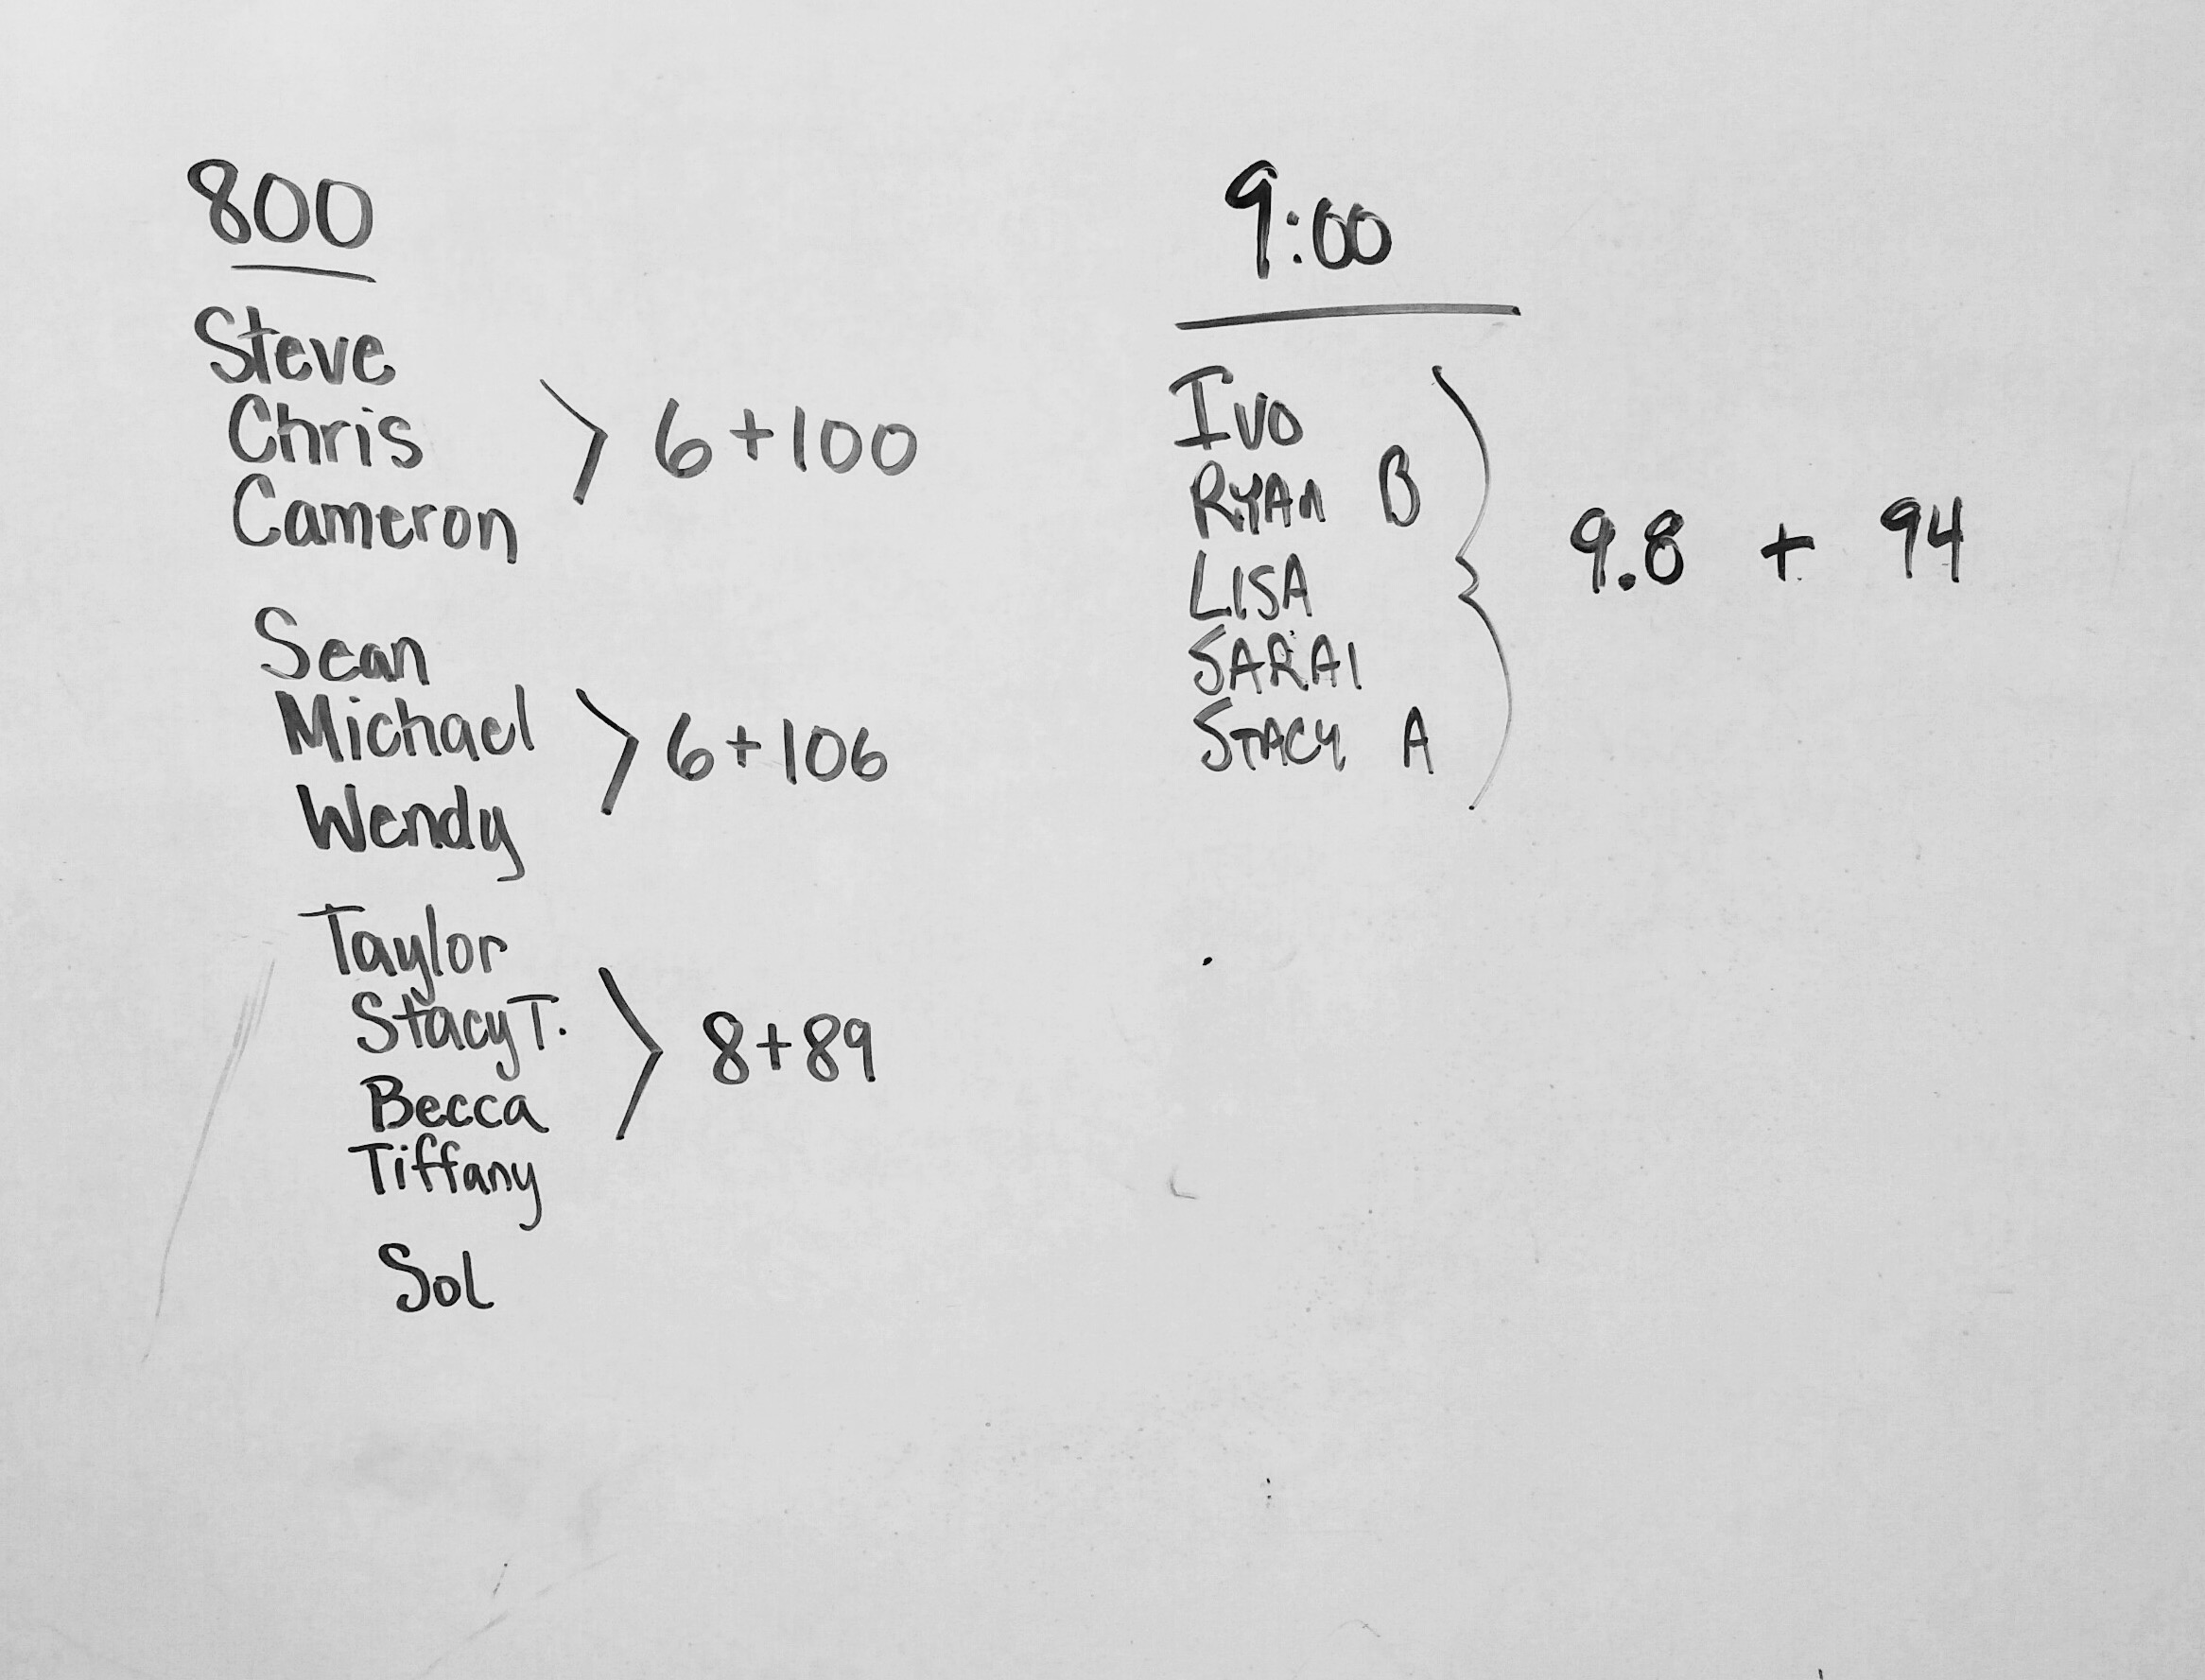 800
Steve
Chris
Cameron
6+100
Sean
Michael
Wendy
6+106
Taylor
Stacy T.
Becca
Tiffany
8+89
Sol
9:00
Ivo
RYAN B
LISA
SARAI
STACY A
9.8 + 94